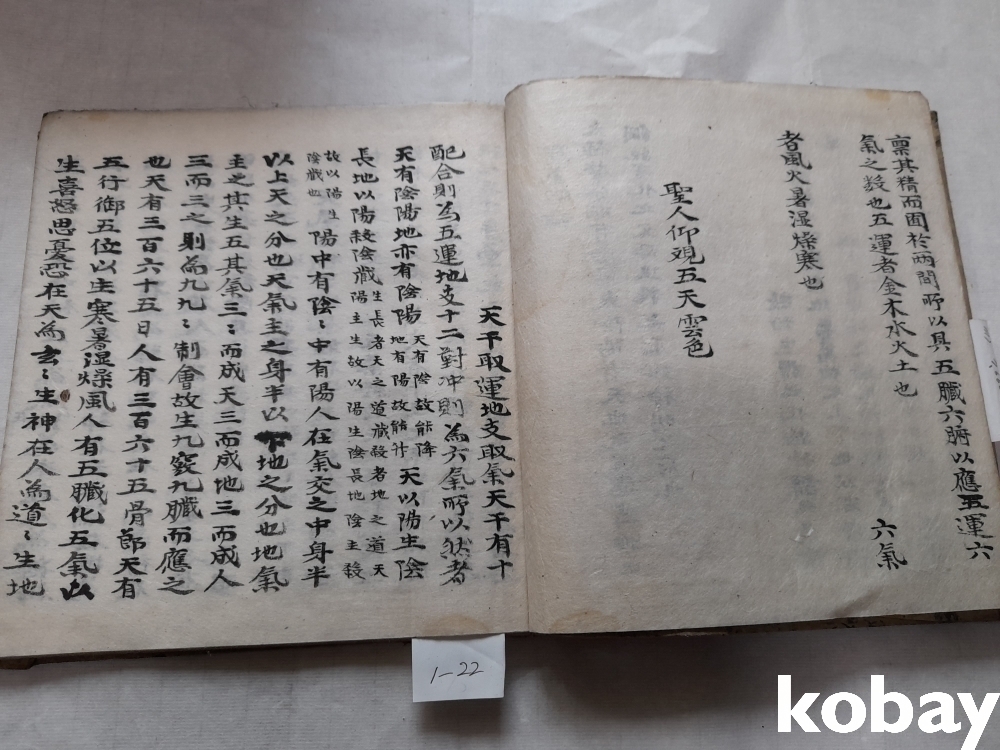 稟其精而囿於兩間所以具五臟六腑以應五運六
氣之数也五運者金木水火土也 六氣
者風火暑湿燥寒也
聖人仰觀五天雲色
天干取運地支取氣天干有十
配合則為五運地支十二對冲則為六氣所以然者
天有陰陽地亦有陰陽 天有陰故能降 地有陽故能升 天以陽生陰
長地以陽殺陰藏 生長者天之道藏殺者地之道天 陽主生故以陽生陰長地陰主殺
故以陽生 陰藏也 陽中有陰〻中有陽人在氣交之中身半
以上天之分也天氣主之身半以下地之分也地氣
主之其生五其氣三〻而成天三而成地三而成人
三而三之則為九九〻制會故生九竅九臟而應之
也天有三百六十五日人有三百六十五骨節天有
五行御五位以生寒暑湿燥風人有五臟化五氣以
生喜怒思憂恐在天為玄〻生神在人為道〻生地
1-22
kobay